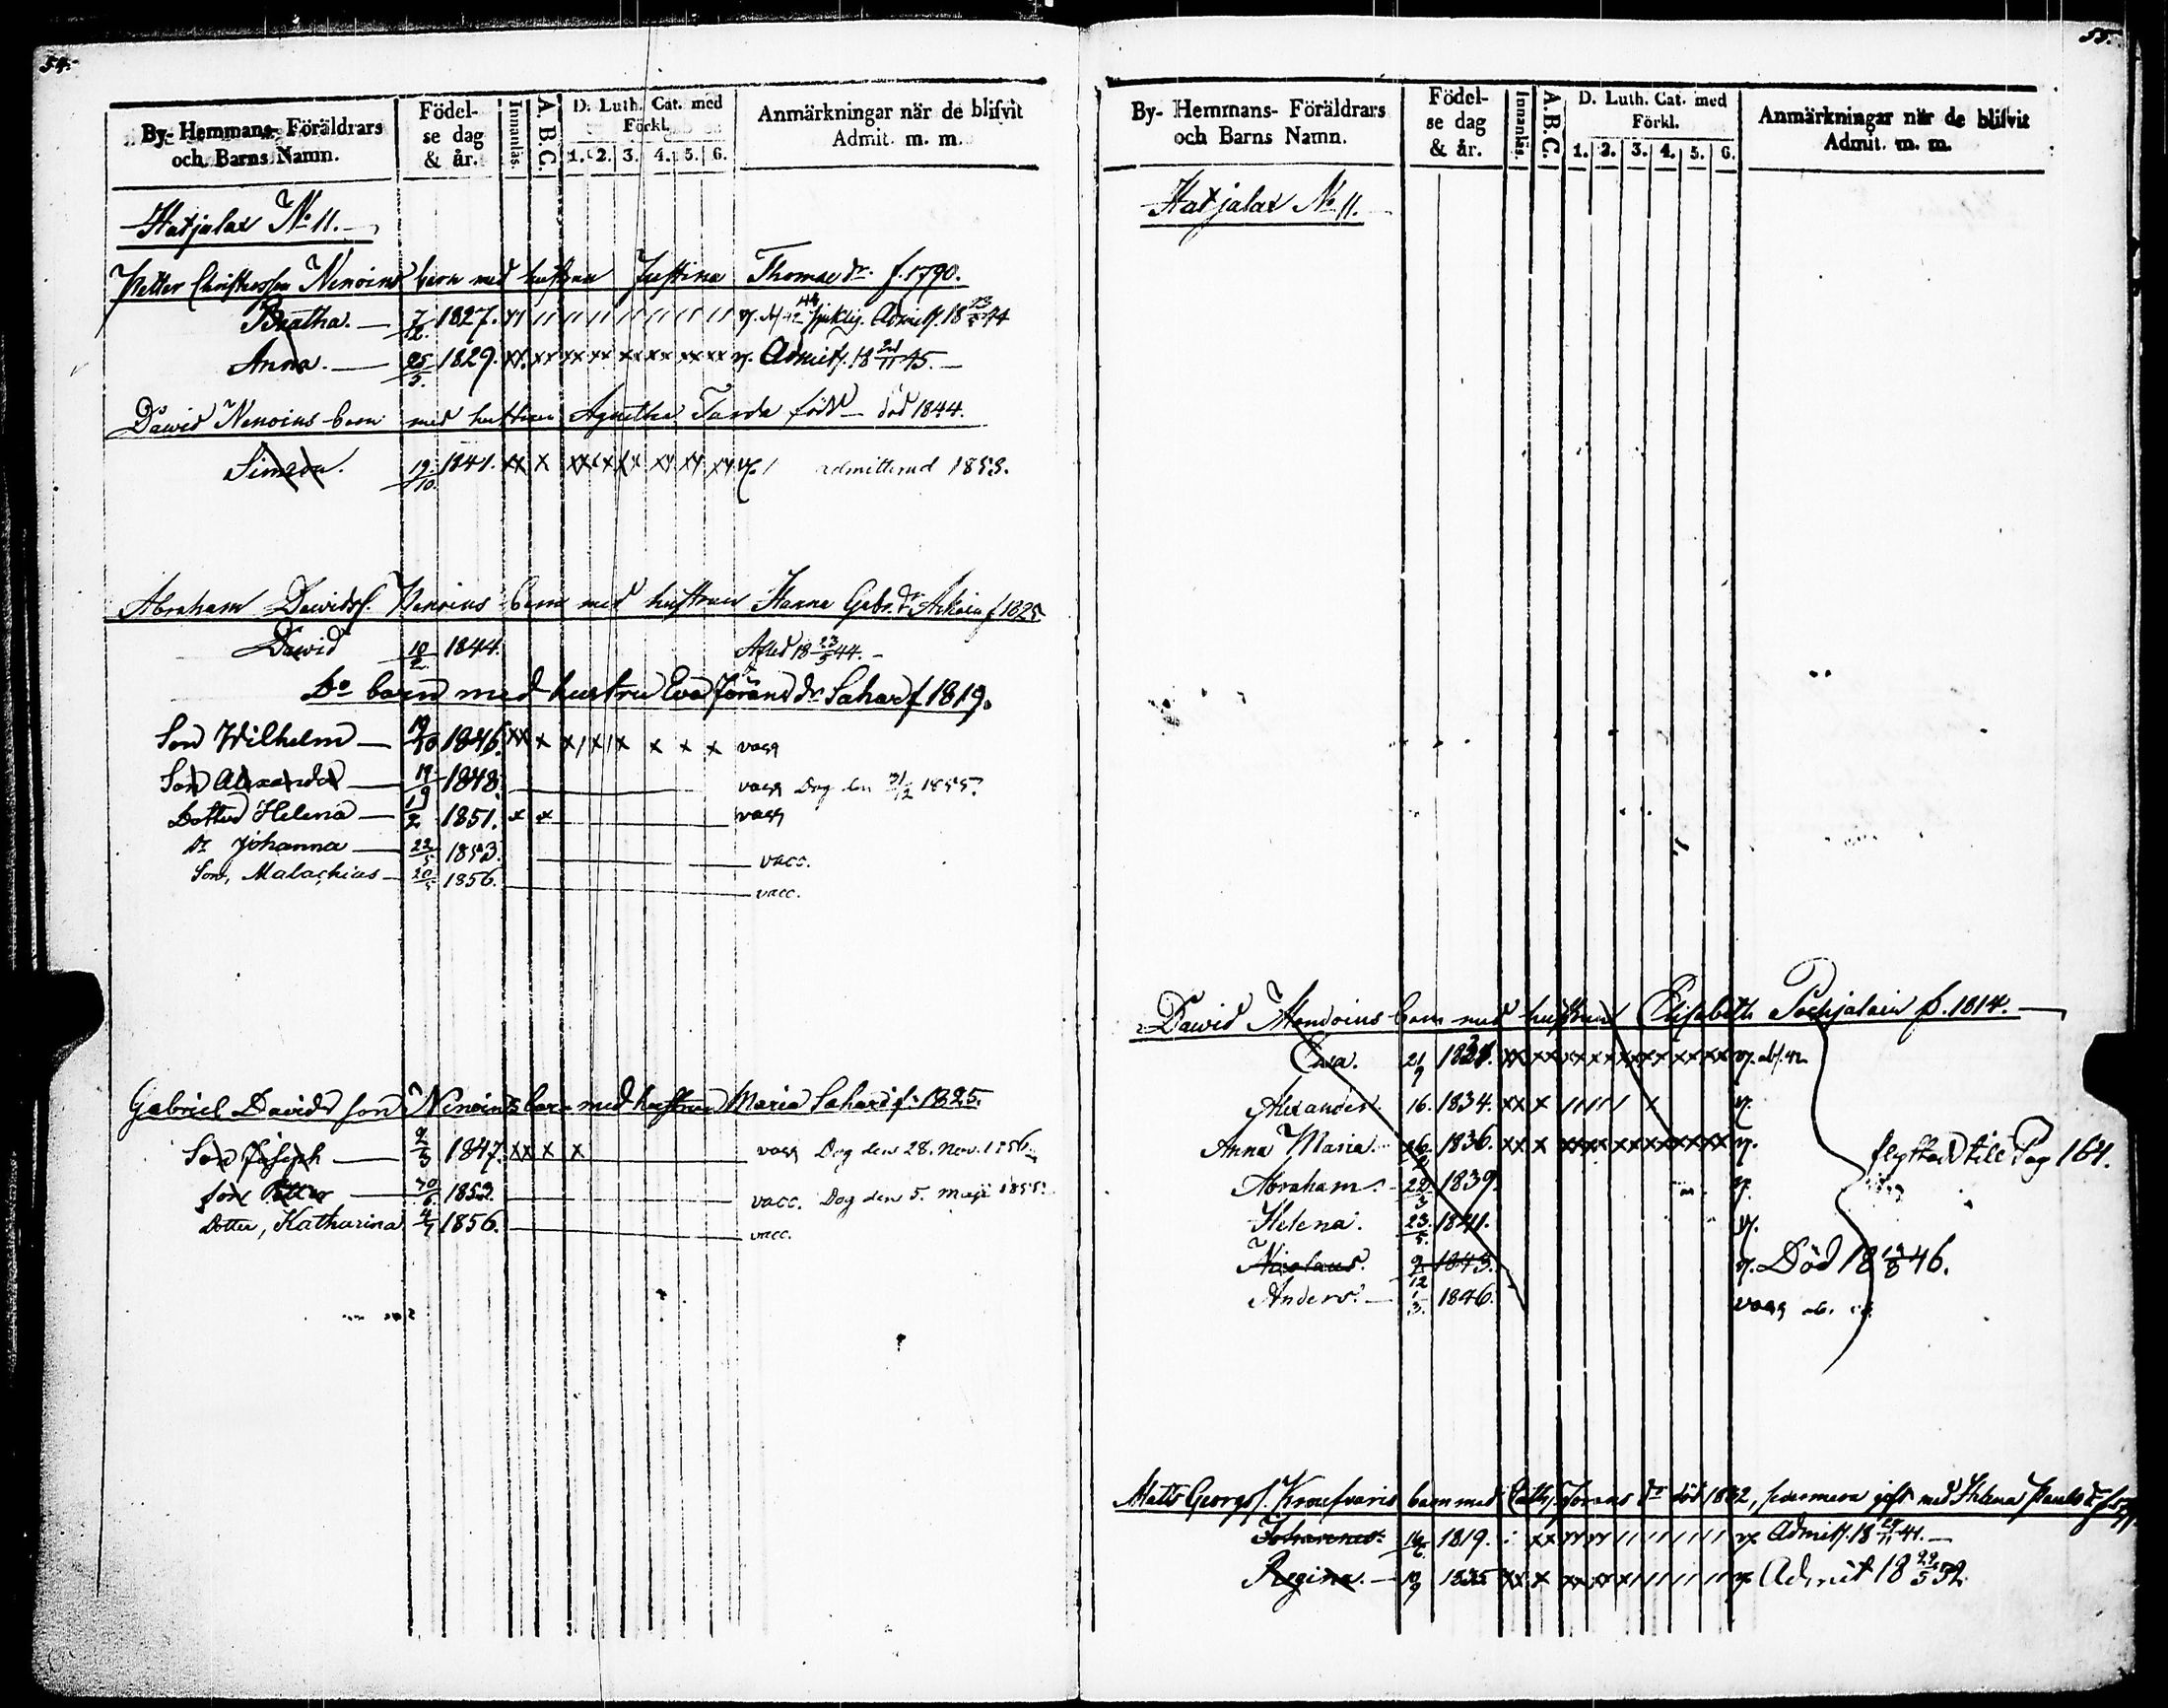 54.
By- Hemmans- Föräldrars och Barns Namn.
Födel-se dag & år.
Innanläs.
A. B. C.
D. Luth. Cat. med Förkl.
1. 2. 3. 4. 5. 6.
Anmärkningar när de blifvit Admit. m. m.
Hatjalax No 11.
Petter Christersson Nenoins barn med hustrun Justina Thomaedr. f. 1790.
Beatha. 7/12 1827. Admitt. 18 23/5 44
Anna. 25/5. 1829. xx. xx xx xx xx xx xx xx Admitt. 18 45.
Dawid Nenoins barn med hustrun Agnetha Tarda född död 1844.
Simeon. 19/10. 1841. xx x admitterad 1858.
Abraham Davidss. Nenoins barn med hustrun Hanna Gabr.dr f 1825
Dawid 18/2 1844. Afled 18 23/5 44.
Do barn med hustru Eva Jörans dr Sahar f 1819.
Son Wilhelm 19/10 1846. xx x x x x x x x vacc
Son Alexander 19 1848. vacc Dog den 31/12 1855.
Dotter Helena 19/2 1851. x x vacc
Dr Johanna 22/5 1853. vacc.
Son, Malachias 20/5 1856. vacc.
Gabriel Davids son Nenoins barn med hustrun Maria Sahari f. 1825.
Son Joseph 2/3 1847. xx x x vacc Dog den 28. Nov. 1856.
Son Petter 30/6. 1852. vacc. Dog den 5. Maji 1855.
Dotter, Katharina 4/7 1856. vacc.
55.
By- Hemmans- Föräldrars och Barns Namn.
Födel-se dag & år.
Innanläs.
A. B. C.
D. Luth. Cat. med Förkl.
1. 2. 3. 4. 5. 6.
Anmärkningar när de blifvit Admit. m. m.
Hatjalax No 11.
Dawid barn med hustrun Elisabeth Pochjalain f. 1814.
Ewa. 21/9
Alexander. 16. 1834. xx x x v.
Anna Maria. 1836. xx x v.
flyttad till Pag 164.
Abraham. 22/3 1839. v.
Helena. 23/5. 1841. v.
Nicolaus. 9/12 1843. v. Död 18 46.
Anders. 1/3. 1846. vacc
Matts Georgss. barn med Cath. Jörans dr död 1832, sedermera gift med Helena Pauls dr
Johannes. 1819. Admitt. 18 41.
Regina. 10/9 1835 xx x Admit 18 29/5 52.